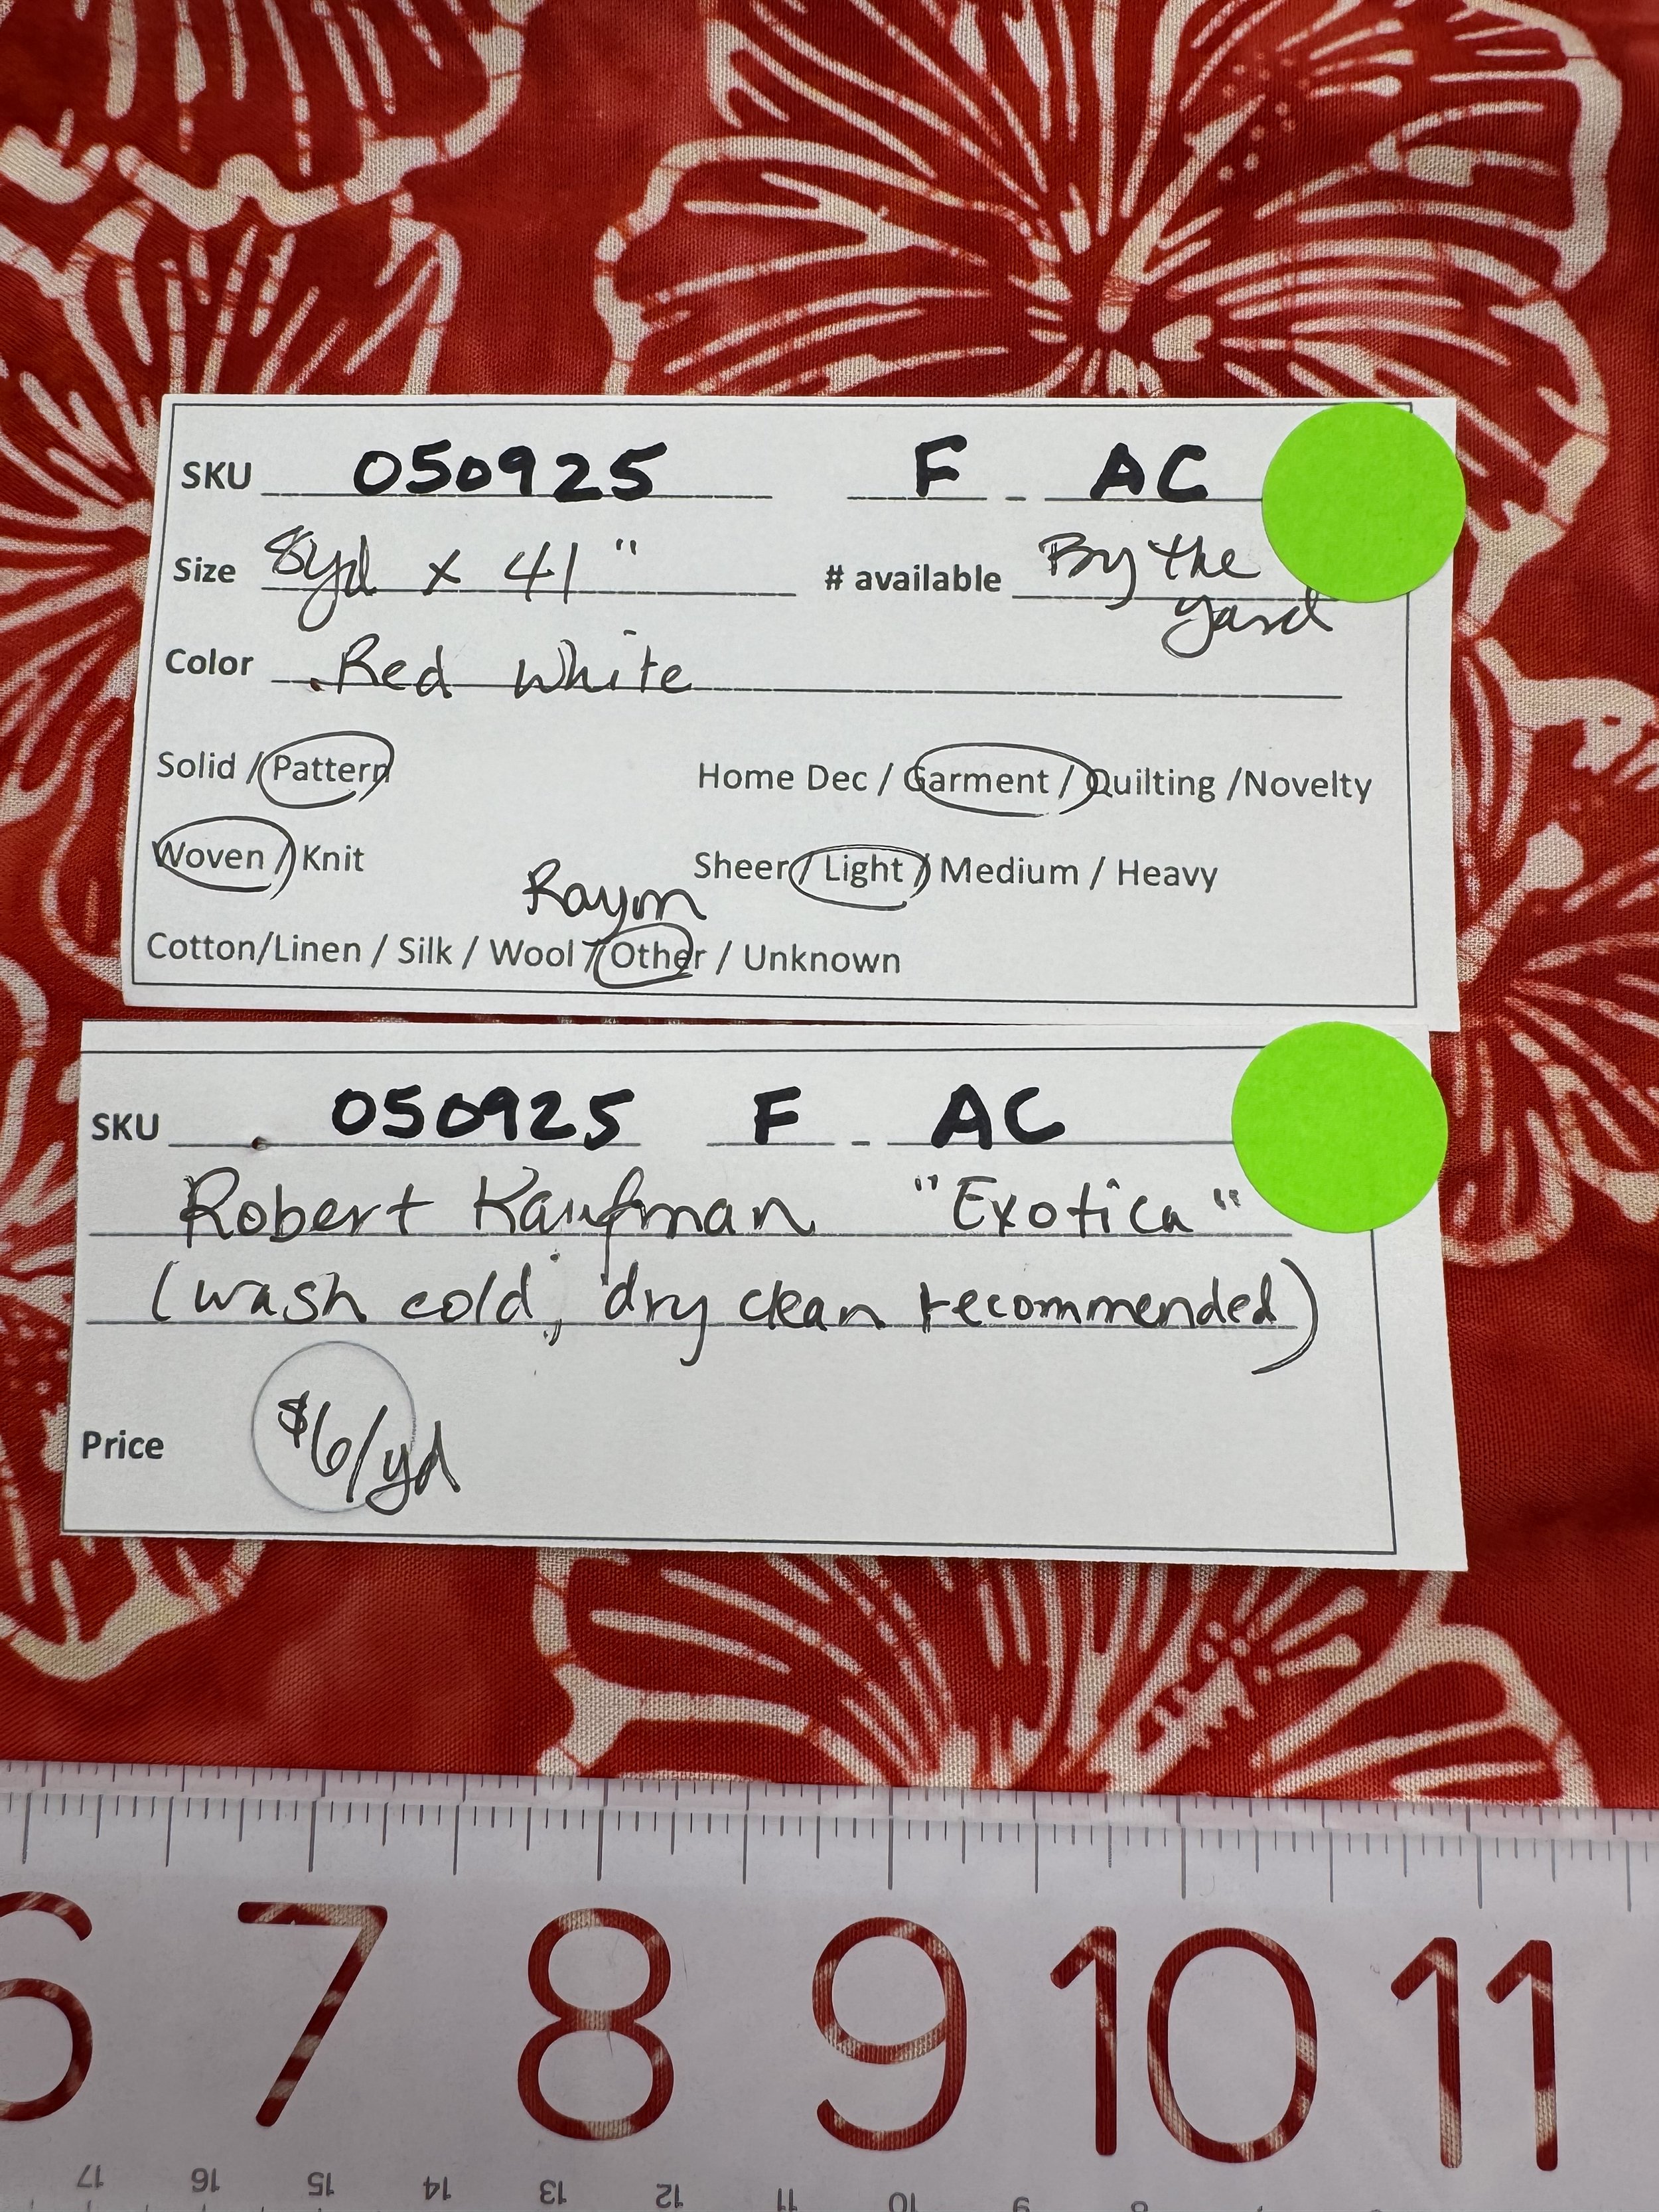 SKU 050925 F - AC
Size 8yd x 41" # available By the
yard
Color Red White
Solid / Pattern Home Dec / Garment / Quilting /Novelty
Woven / Knit Sheer / Light / Medium / Heavy
Rayon
Cotton/Linen / Silk / Wool / Other / Unknown
SKU 050925 F - AC
Robert Kaufman "Exotica"
(wash cold, dry clean recommended)
Price $6/yd
6 7 8 9 10 11
17 16 15 14 13 12 11 10 9 8